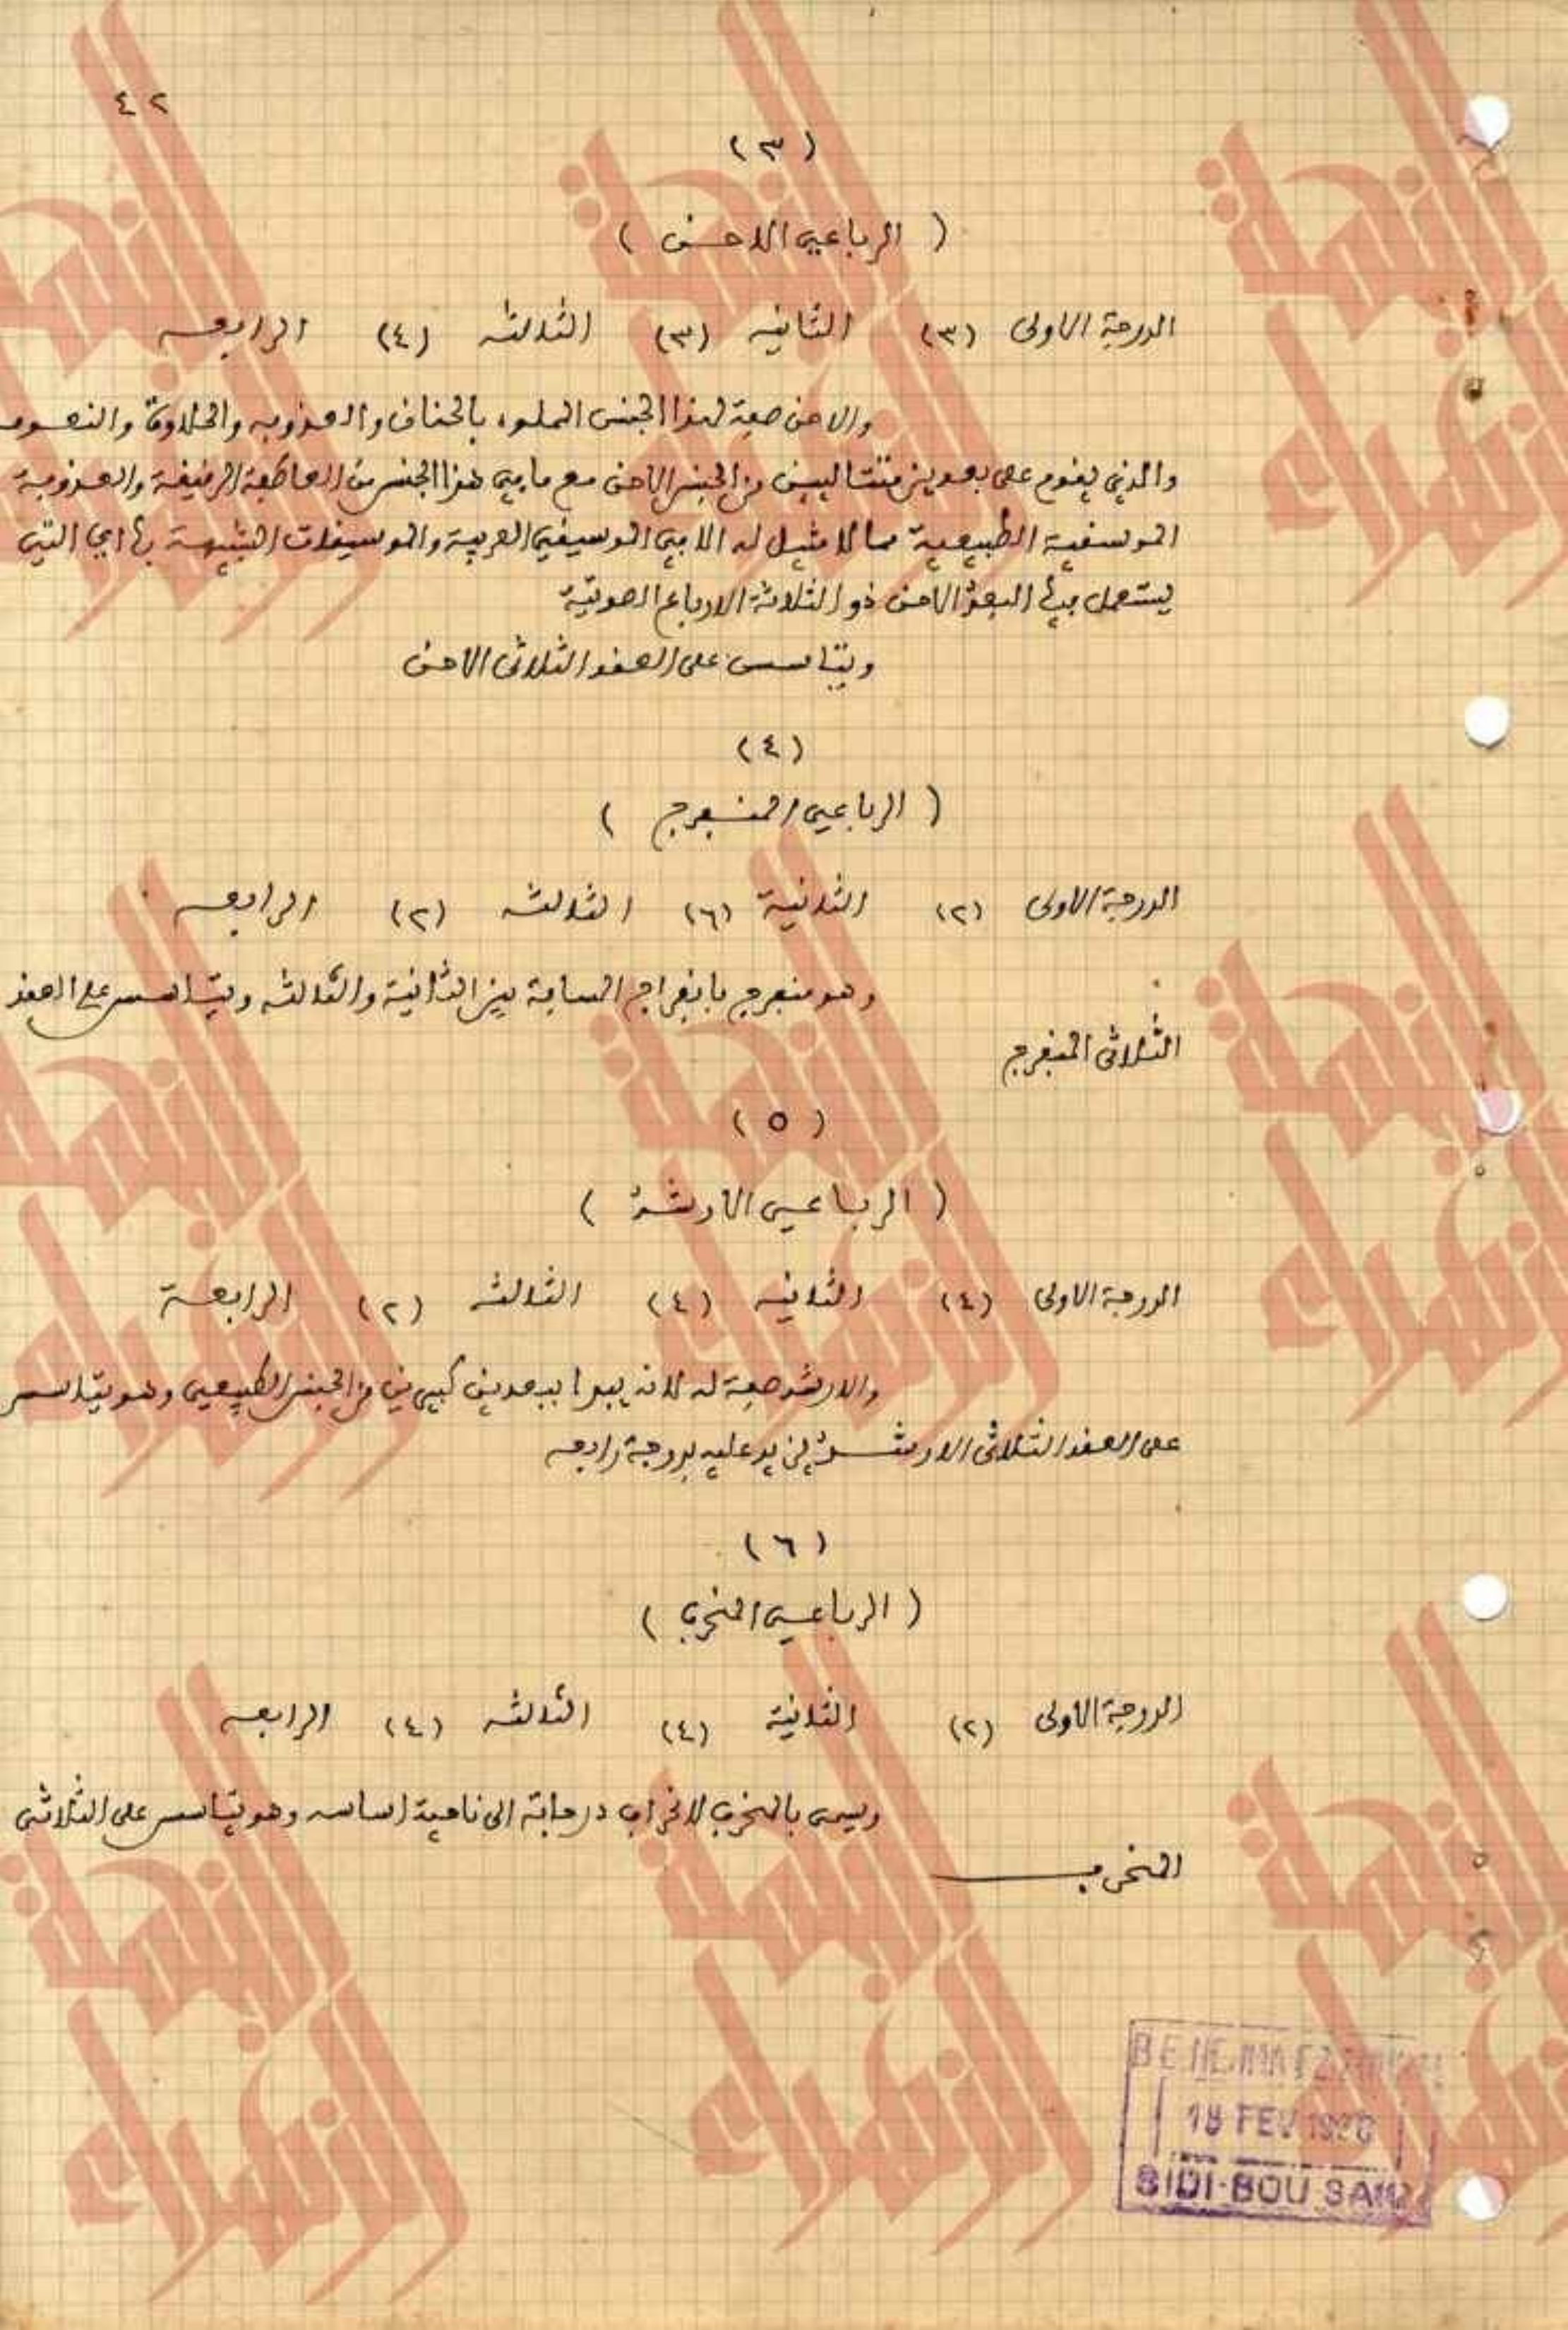 ٤٢
(٣)
(الرباعي الاحن)
الدرجة الاولى (٣) الثانيه (٣) الثالثه (٤) الرابعه
والاحن صفة لهذا الجنس المملوء بالحنان والعذوبه والحلاوة والنعومه
والذي يقوم على بعدين متتاليين من الجنس الاحن مع ما في هذا الجنس من العاطفة الرقيقة والعذوبة
الموسقية الطبيعية مما لا مثيل له الا في الموسيقى العربية والموسيقات الشبيهة بها اي التي
يستعمل فيها البعد الاحن ذو الثلاثة الارباع الصوتية
ويتاسس على العقد الثلاثي الاحن
(٤)
(الرباعي المنفرج)
الدرجة الاولى (٢) الثانية (٦) الثالثه (٢) الرابعه
وهو منفرج بانفراج المسافة بين الثانية والثالثه ويتاسس على العقد
الثلاثي المنفرج
(٥)
(الرباعي الارشد)
الدرجة الاولى (٤) الثانيه (٤) الثالثه (٢) الرابعة
والارشد صفة له لانه يبدا ببعدين كبيرين من الجنس الطبيعي وهو يتاسس
على العقد الثلاثي الارشد يزيد عليه بدرجة رابعه
(٦)
(الرباعي المنحرف)
الدرجة الاولى (٢) الثانية (٤) الثالثه (٤) الرابعه
ويسمى بالمنحرف لانحراف درجاته الى ناحية اساسه وهو يتاسس على الثلاثي
المنحرف
18 FEV
SIDI-BOU SAID